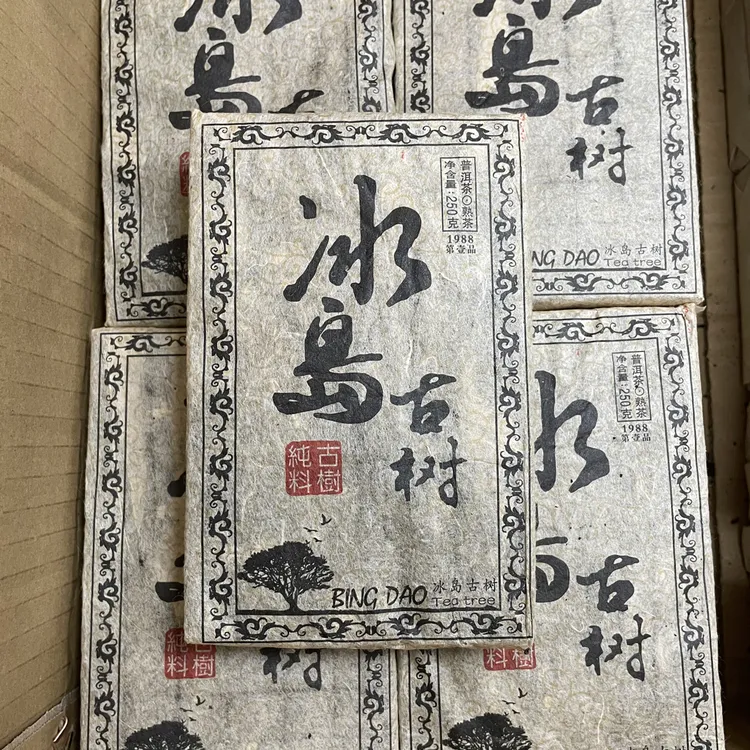 冰島
古树
普洱茶⊙熟茶
净含量:250克
1988
第壹品
古樹
純料
BING DAO 冰島古树
Tea tree
冰島
古树
NG DAO 冰島古树
Tea tree
冰
古树
普洱茶⊙熟茶
净含量:250克
1988
第壹品
古樹
純料